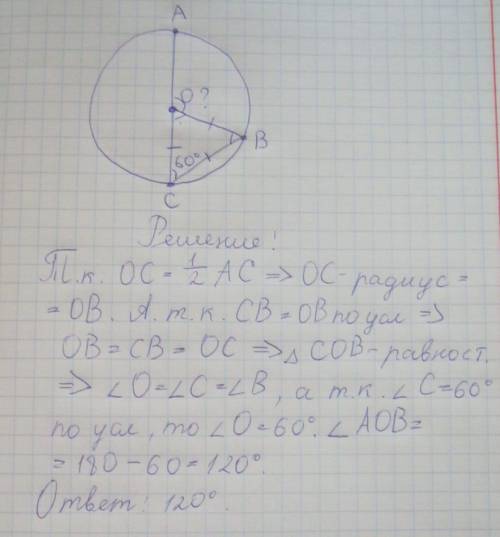 A
O?
B
60°
C
Решение!
Т.к. OC = 1/2 AC => OC - радиус =
= OB. А т.к. CB = OB по усл =>
OB = CB = OC => △ COB - равност.
=> ∠O = ∠C = ∠B, а т.к. ∠C = 60°
по усл, то ∠O = 60°. ∠AOB =
= 180 - 60 = 120°.
Ответ: 120°.